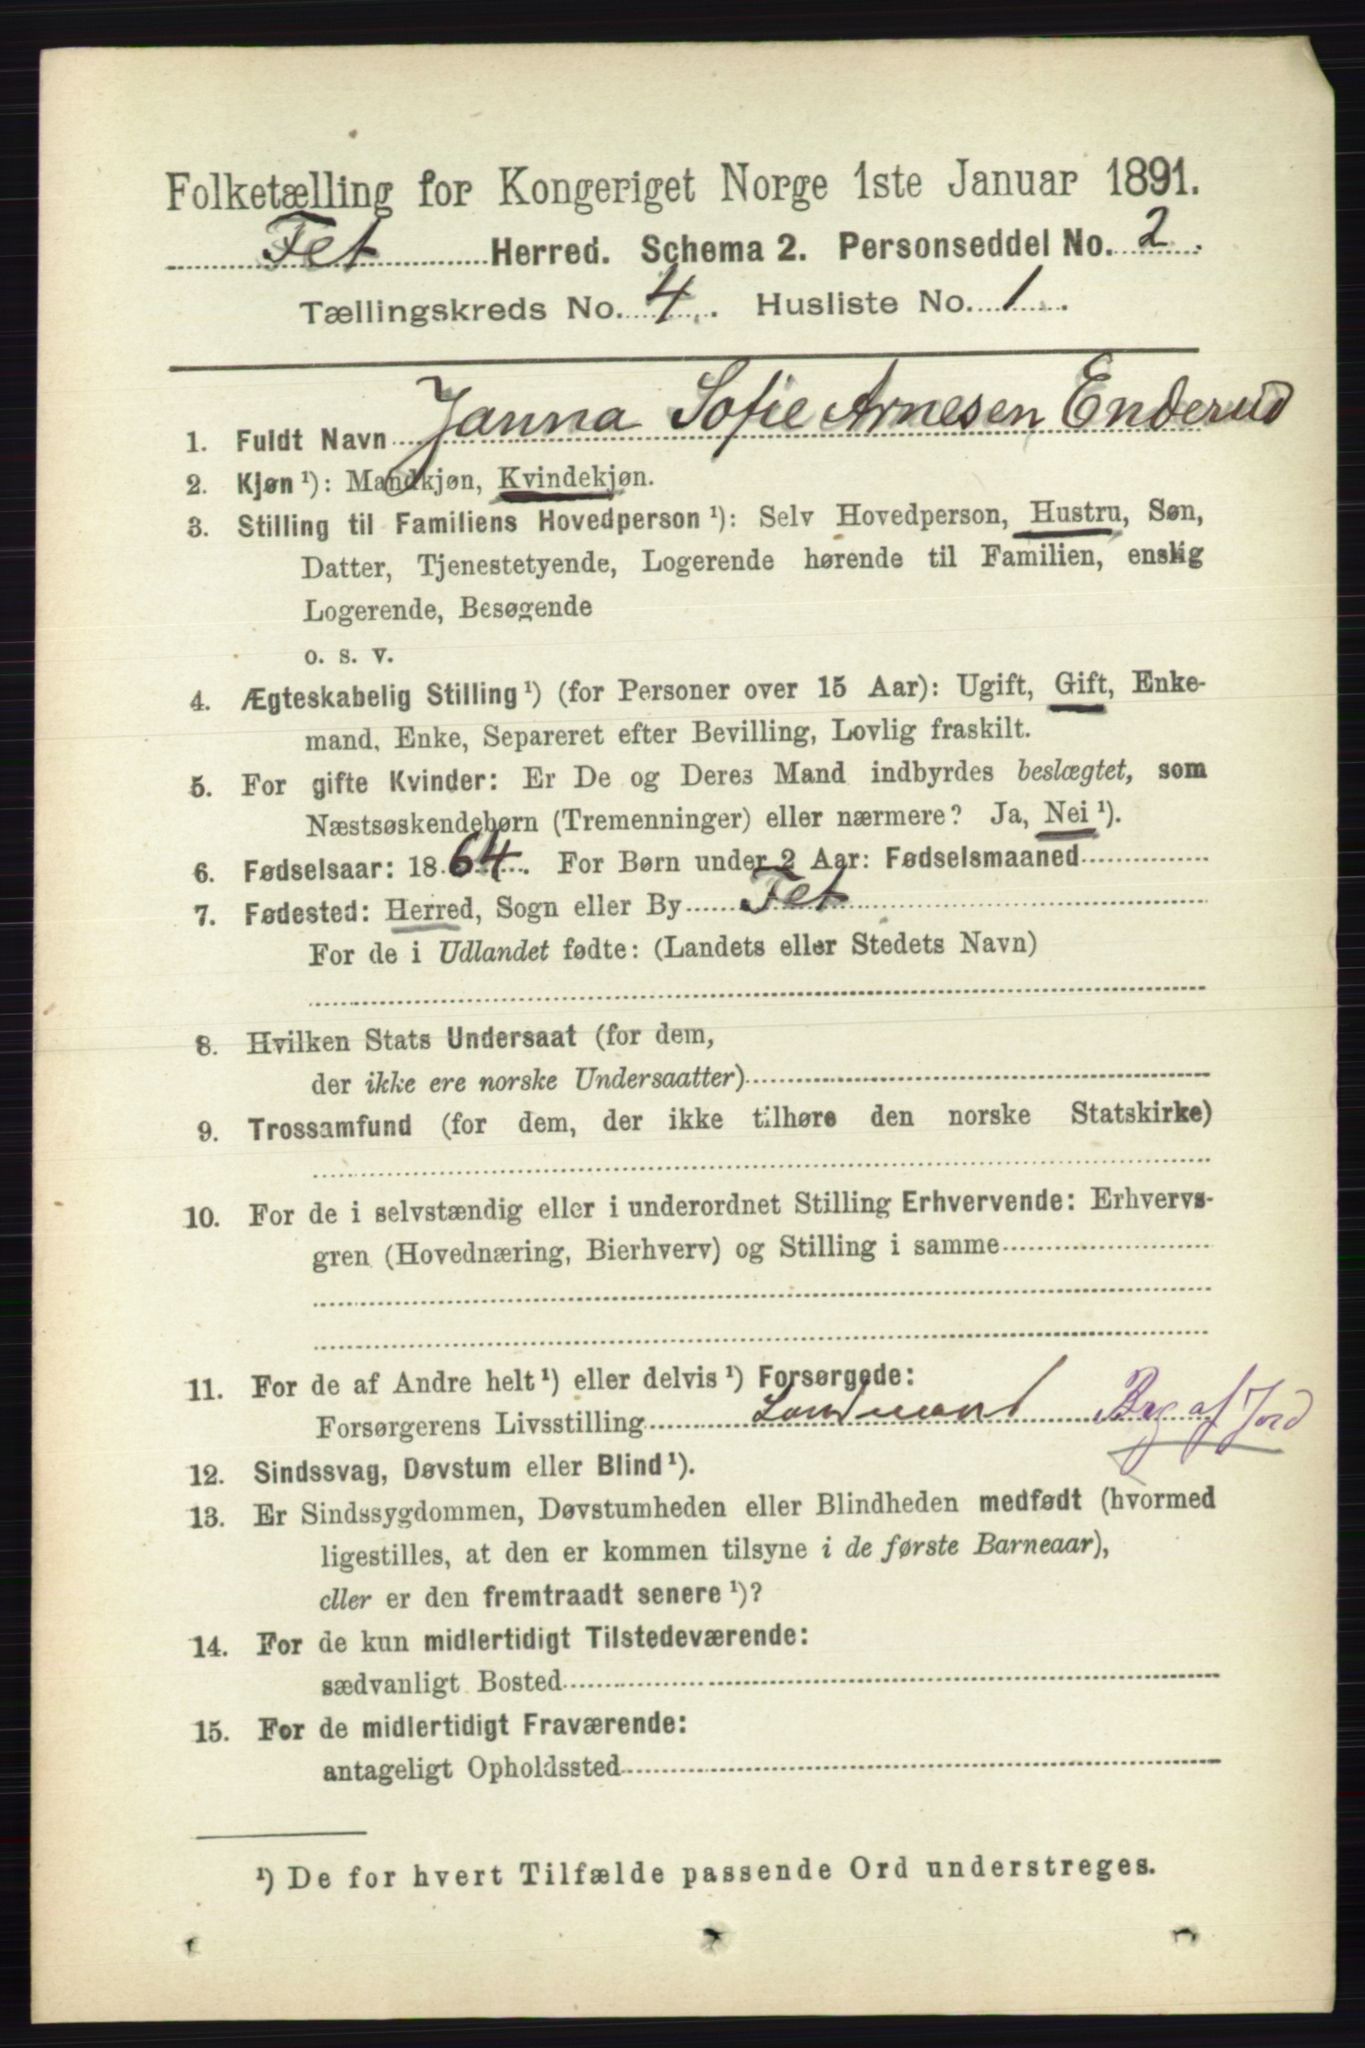 Folketælling for Kongeriget Norge 1ste Januar 1891.
Fet Herred. Schema 2. Personseddel No. 2.
Tællingskreds No. 4. Husliste No. 1.
1. Fuldt Navn Janna Sofie Arnesen Enderud
2. Kjøn ¹): Mandkjøn, Kvindekjøn.
3. Stilling til Familiens Hovedperson ¹): Selv Hovedperson, Hustru, Søn,
Datter, Tjenestetyende, Logerende hørende til Familien, enslig
Logerende, Besøgende
o. s. v.
4. Ægteskabelig Stilling ¹) (for Personer over 15 Aar): Ugift, Gift, Enke-
mand, Enke, Separeret efter Bevilling, Lovlig fraskilt.
5. For gifte Kvinder: Er De og Deres Mand indbyrdes beslægtet, som
Næstsøskendebørn (Tremenninger) eller nærmere? Ja, Nei ¹).
6. Fødselsaar: 1864. For Børn under 2 Aar: Fødselsmaaned
7. Fødested: Herred, Sogn eller By Fet
For de i Udlandet fødte: (Landets eller Stedets Navn)
8. Hvilken Stats Undersaat (for dem,
der ikke ere norske Undersaatter)
9. Trossamfund (for dem, der ikke tilhøre den norske Statskirke)
10. For de i selvstændig eller i underordnet Stilling Erhvervende: Erhvervs-
gren (Hovednæring, Bierhverv) og Stilling i samme
11. For de af Andre helt ¹) eller delvis ¹) Forsørgede:
Forsørgerens Livsstilling Landmand Brg af Jord
12. Sindssvag, Døvstum eller Blind ¹).
13. Er Sindssygdommen, Døvstumheden eller Blindheden medfødt (hvormed
ligestilles, at den er kommen tilsyne i de første Barneaar),
eller er den fremtraadt senere ¹)?
14. For de kun midlertidigt Tilstedeværende:
sædvanligt Bosted
15. For de midlertidigt Fraværende:
antageligt Opholdssted
¹) De for hvert Tilfælde passende Ord understreges.